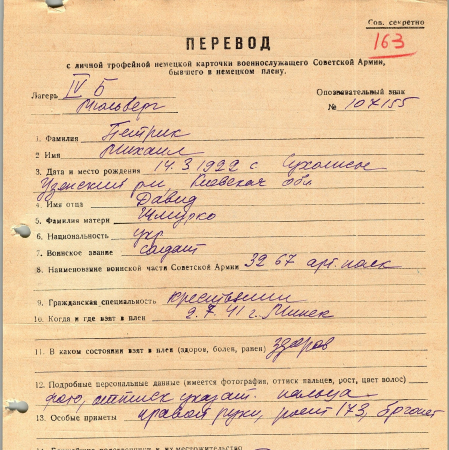 Сов. секретно
163
ПЕРЕВОД
с личной трофейной немецкой карточки военнослужащего Советской Армии,
бывшего в немецком плену.
Лагерь IV Б
Мюльберг
Опознавательный знак
№ 107155
1. Фамилия Петрик
2 Имя Михаил
3. Дата и место рождения 14.3.1922 с Сухолисы
Узенский р-н Киевская обл
4. Имя отца Давид
5. Фамилия матери Шмурко
6. Национальность укр
7. Воинское звание солдат
8. Наименование воинской части Советской Армии 32 67 арт. полк
9. Гражданская специальность крестьянин
10. Когда и где взят в плен 2.7.41 г. Минск
11. В каком состоянии взят в плен (здоров, болен, ранен) здоров
12. Подробные персональные данные (имеется фотография, оттиск пальцев, рост, цвет волос)
фото, оттиск указат. пальца
13. Особые приметы правой руки, рост 173, брюнет